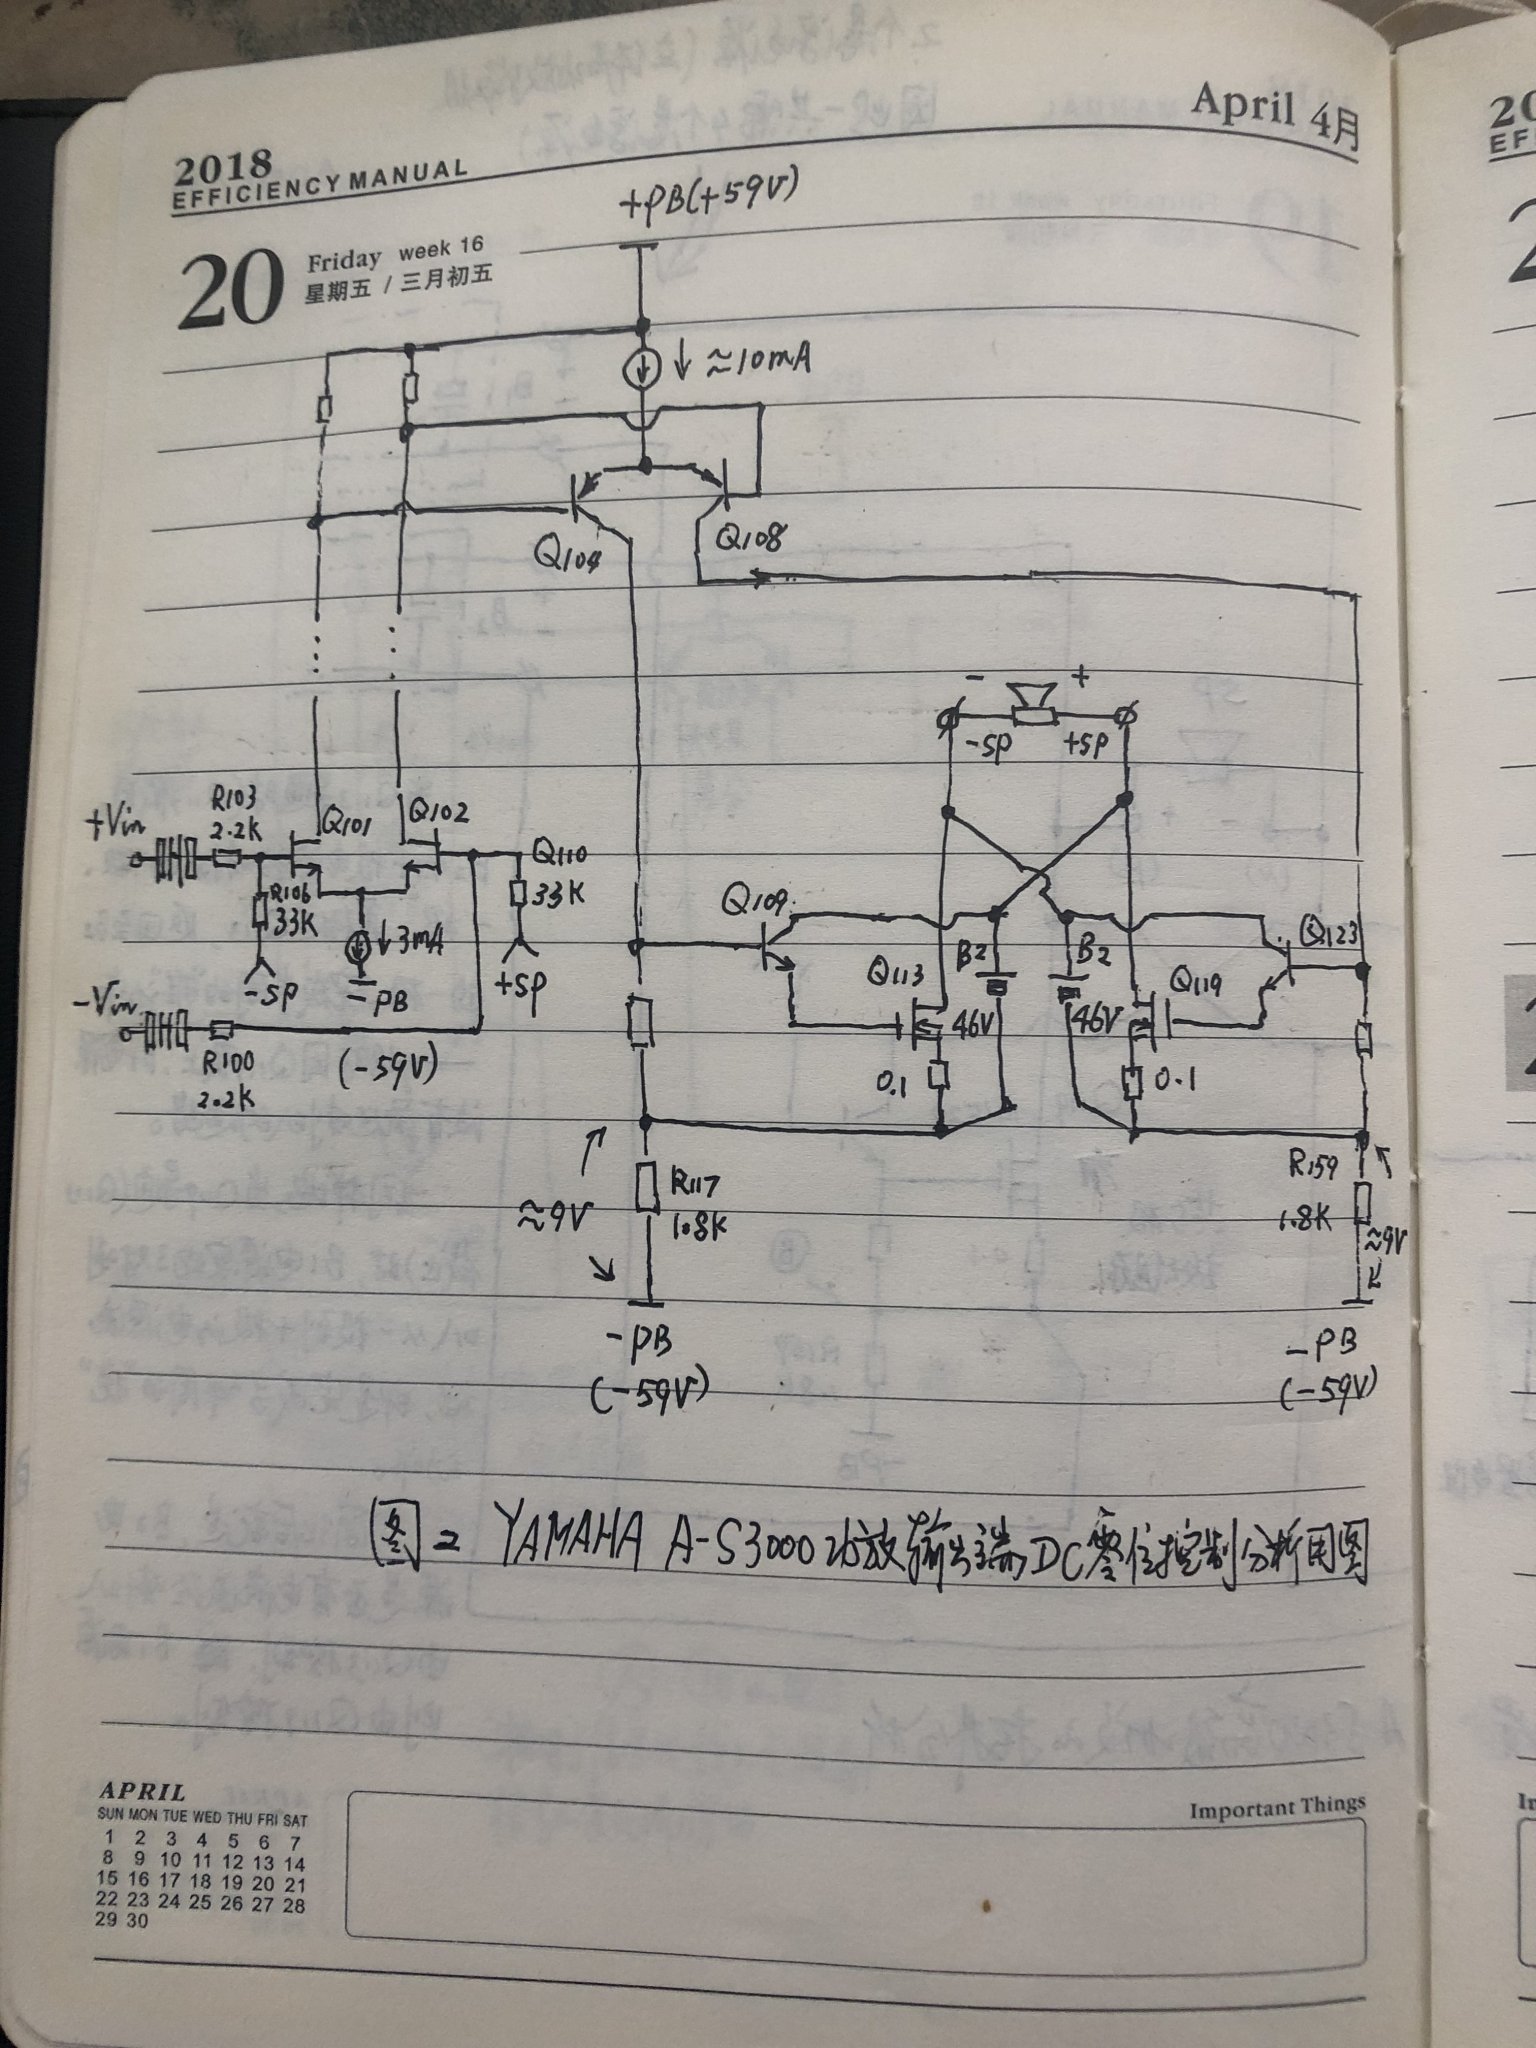 April 4月
2018
EFFICIENCY MANUAL
20
Friday week 16
星期五 / 三月初五
+PB(+59V)
↓ ≈10mA
Q104
Q108
- +
-SP +SP
+Vin
R103
2.2K
Q101
Q102
Q110
33K
R106
33K
↓3mA
-SP
-PB
+SP
-Vin
R100
2.2K
(-59V)
Q109
Q113
B2
46V
B2
46V
Q119
Q123
0.1
0.1
≈9V
R117
1.8K
R159
1.8K
≈9V
-PB
(-59V)
-PB
(-59V)
图二 YAMAHA A-S3000功放输出端DC零位控制分析用图
APRIL
SUN MON TUE WED THU FRI SAT
1 2 3 4 5 6 7
8 9 10 11 12 13 14
15 16 17 18 19 20 21
22 23 24 25 26 27 28
29 30
Important Things